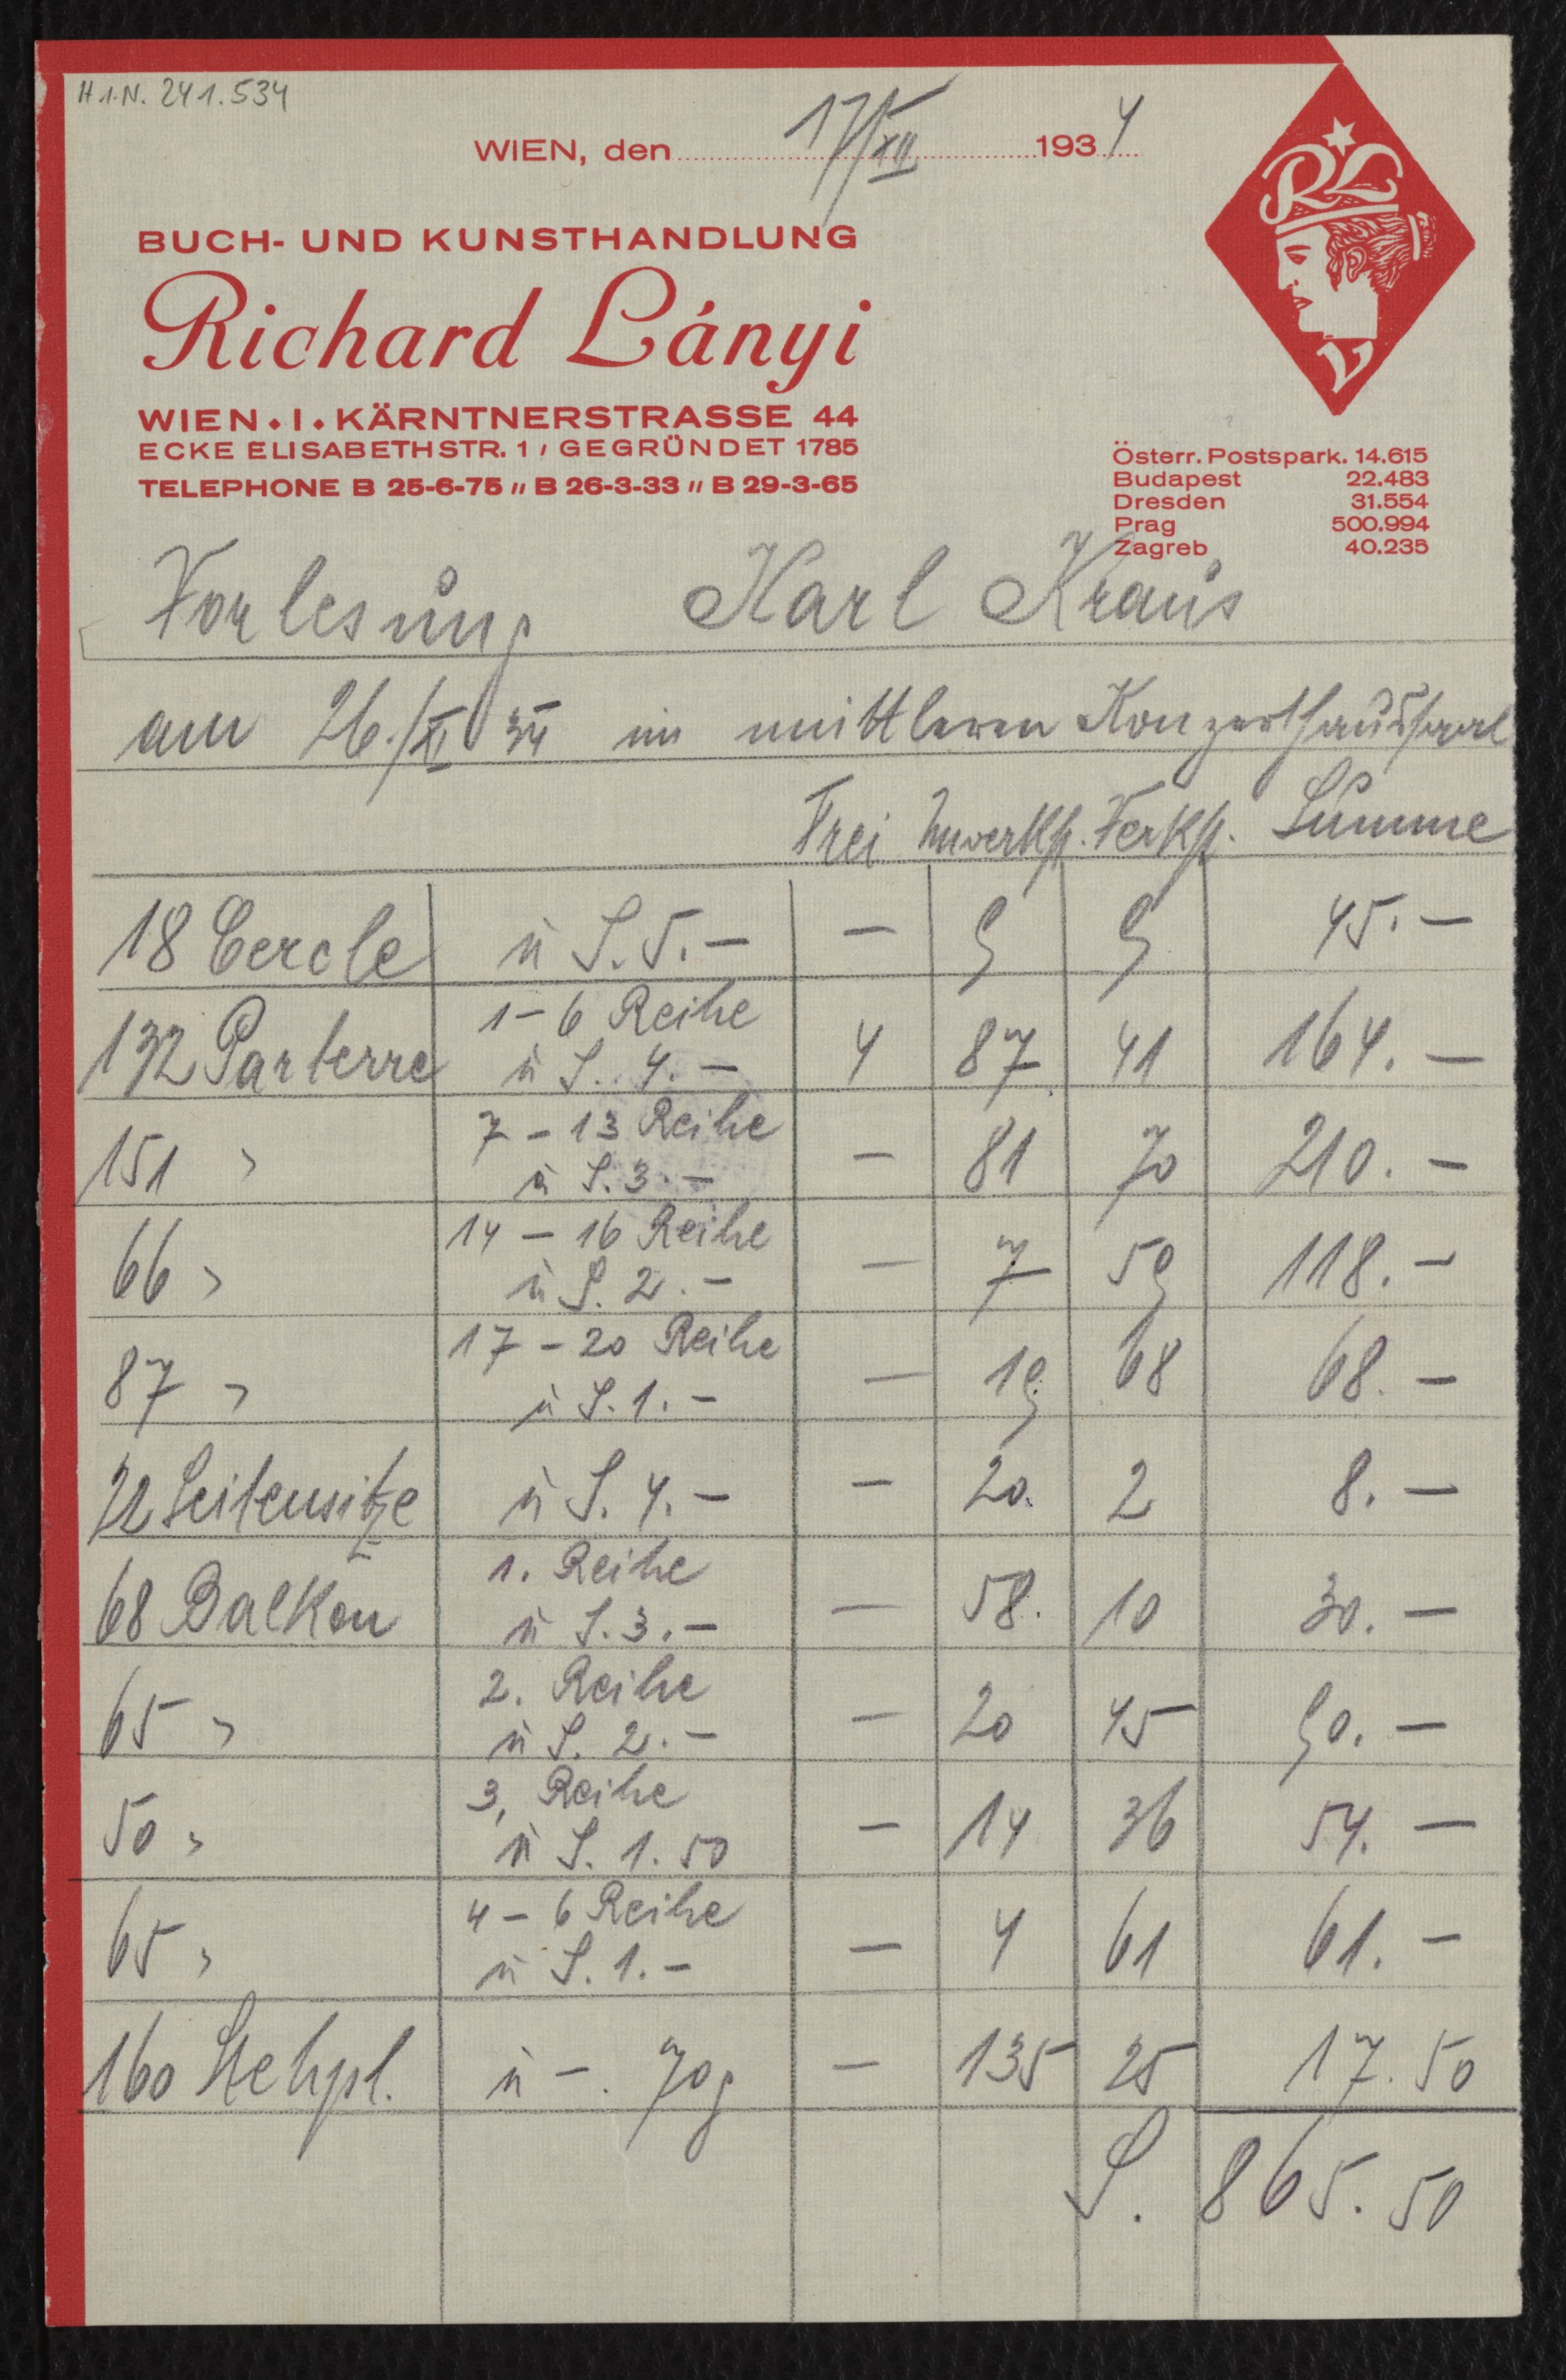 H.I.N. 241.534
WIEN, den 17/XII 1934
RL
BUCH- UND KUNSTHANDLUNG
Richard Lányi
WIEN • I • KÄRNTNERSTRASSE 44
ECKE ELISABETHSTR. 1 / GEGRÜNDET 1785
TELEPHONE B 25-6-75 // B 26-3-33 // B 29-3-65
Österr. Postspark. 14.615
Budapest 22.483
Dresden 31.554
Prag 500.994
Zagreb 40.235
Vorlesung Karl Kraus
am 26./XI 34 im mittleren Konzerthaussaal
Frei Unverkft. Verkft. Summe
18 Cercle à S. 5.— — 9 9 45.—
132 Parterre 1-6 Reihe à S. 4.— 4 87 41 164.—
151 " 7-13 Reihe à S. 3.— — 81 70 210.—
66 " 14-16 Reihe à S. 2.— — 7 59 118.—
87 " 17-20 Reihe à S. 1.— — 19 68 68.—
22 Seitensitze à S. 4.— — 20 2 8.—
68 Balkon 1. Reihe à S. 3.— — 58 10 30.—
65 " 2. Reihe à S. 2.— — 20 45 90.—
50 " 3. Reihe à S. 1.50 — 14 36 54.—
65 " 4-6 Reihe à S. 1.— — 4 61 61.—
160 Stehpl. à —.70g — 135 25 17.50
S. 865.50